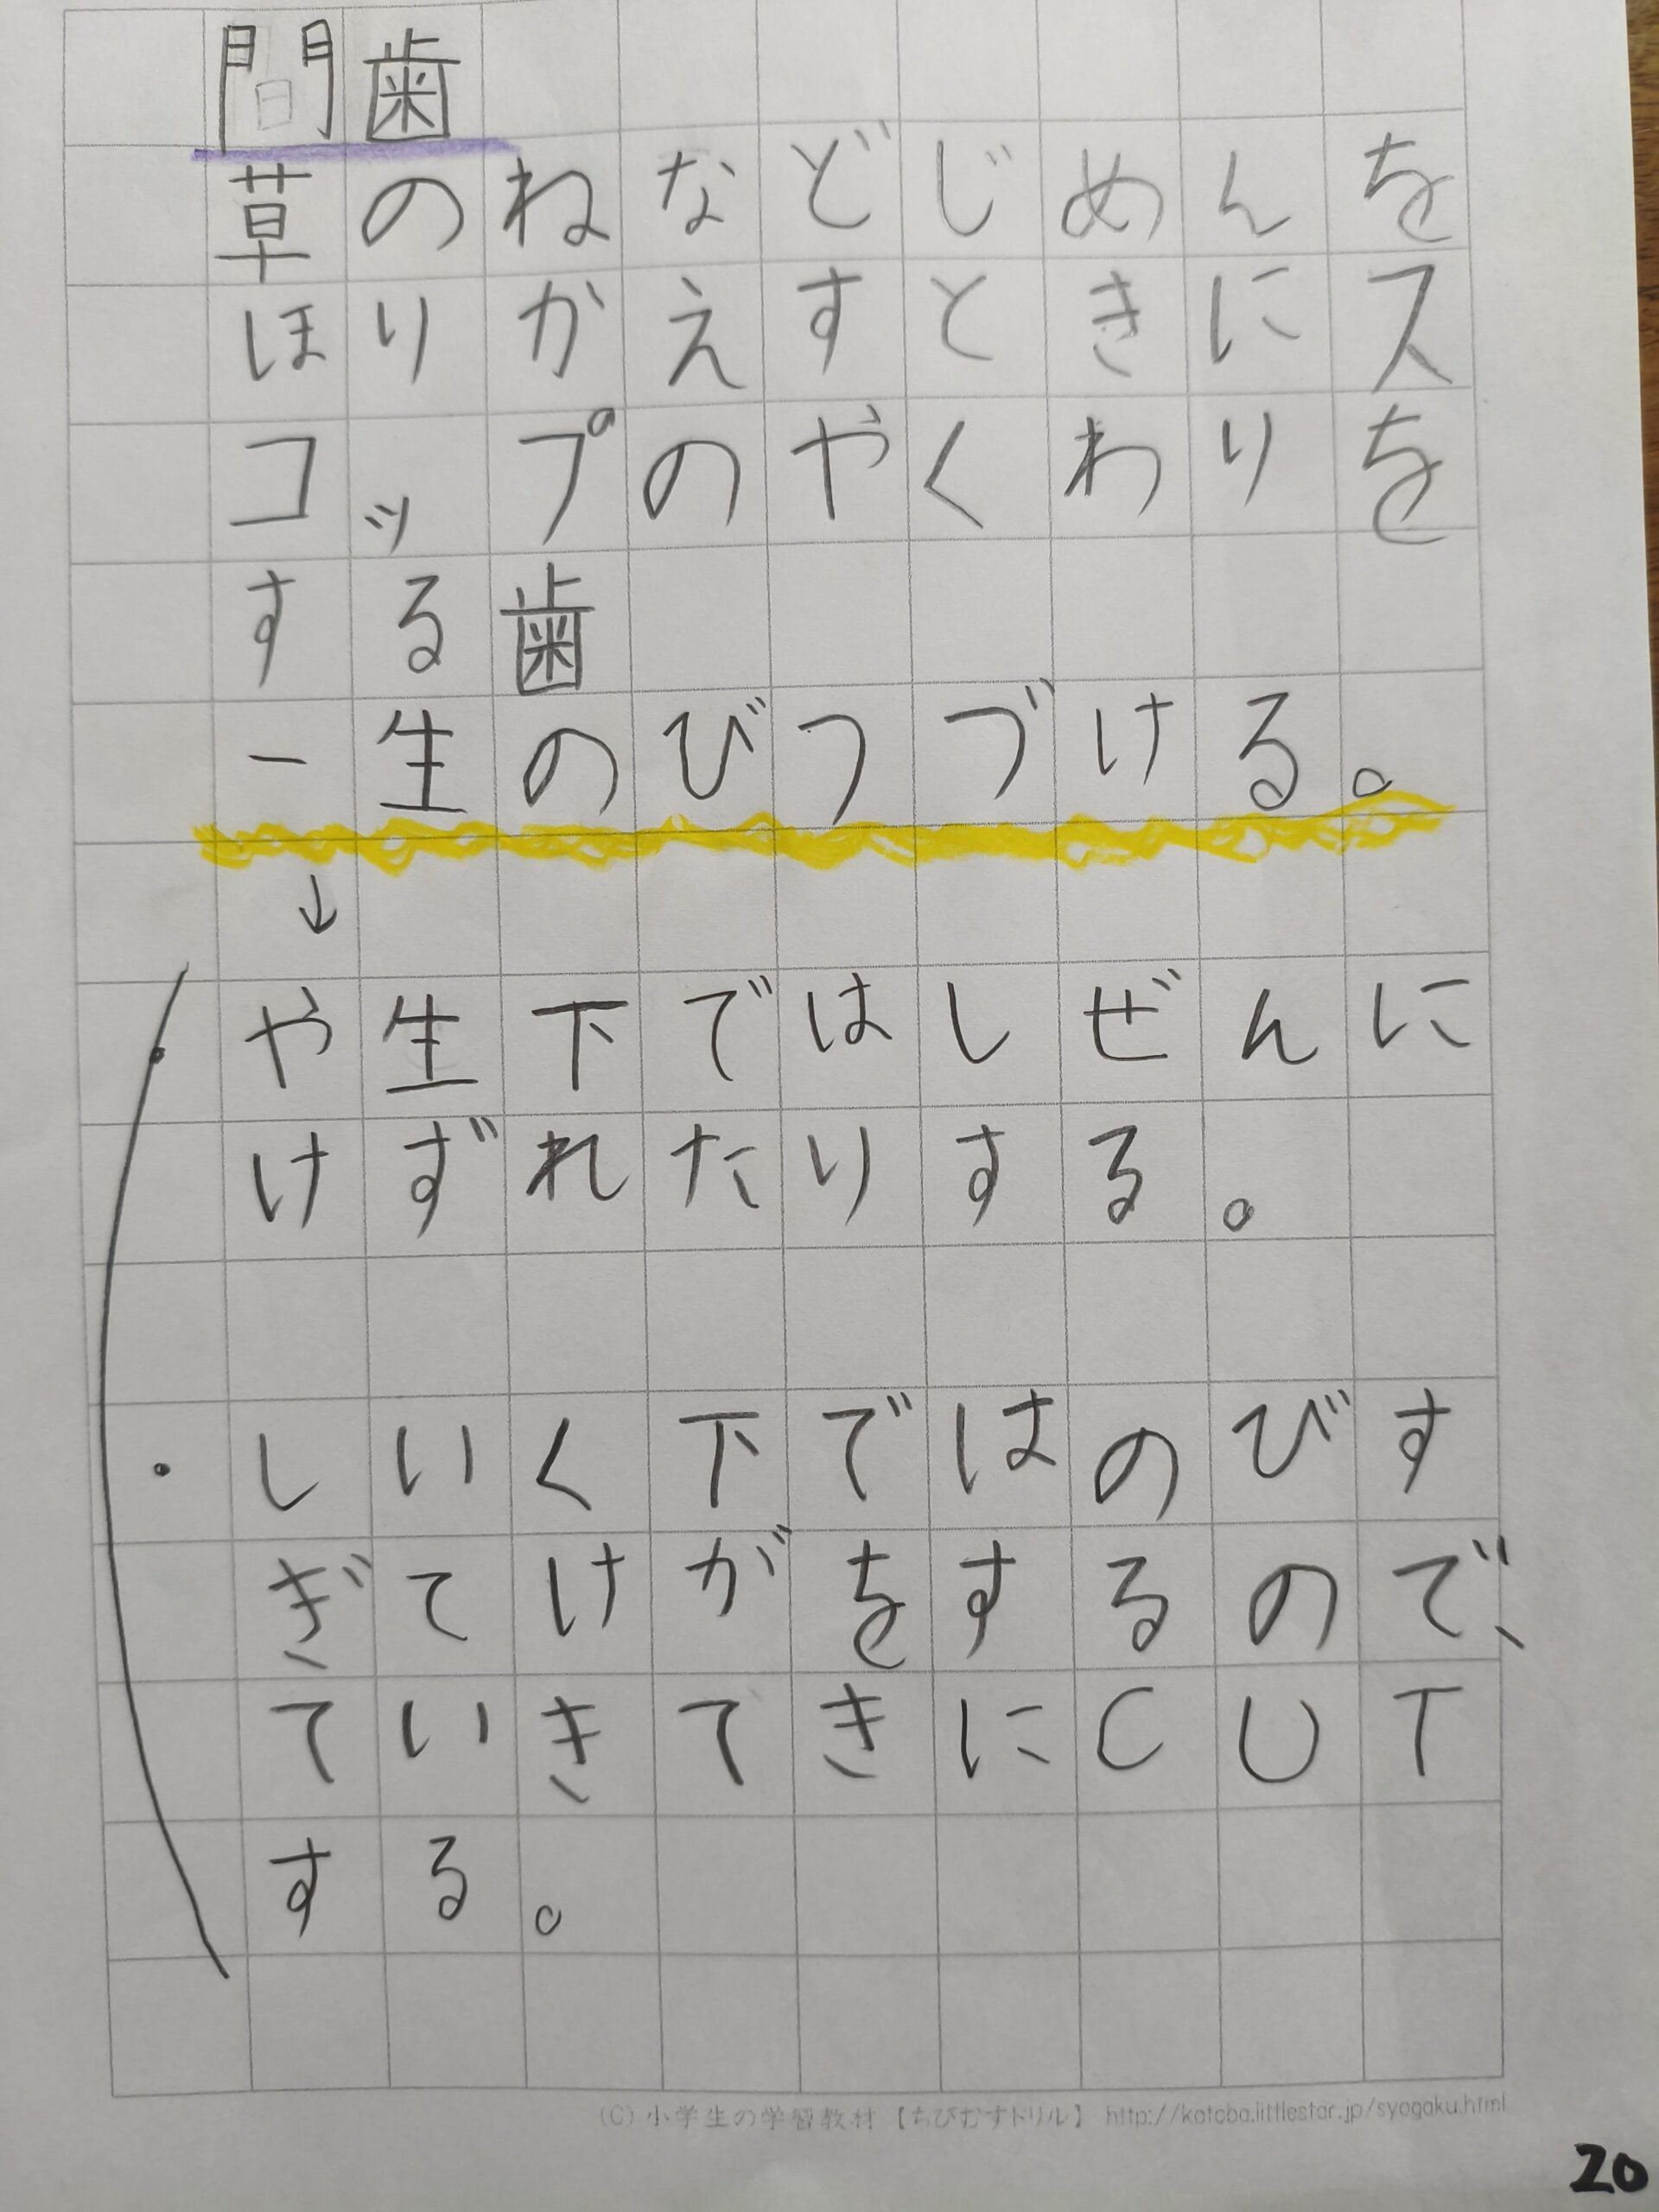 間歯
草のねなどじめんを
ほりかえすときにス
コップのやくわりを
する歯
一生のびつづける。
↓
・や生下ではしぜんに
けずれたりする。
・しいく下ではのびす
ぎてけがをするので、
ていきてきにCUT
する。
(C) 小学生の学習教材【ちびむすドリル】 http://kotoba.littlestar.jp/syogaku.html
20